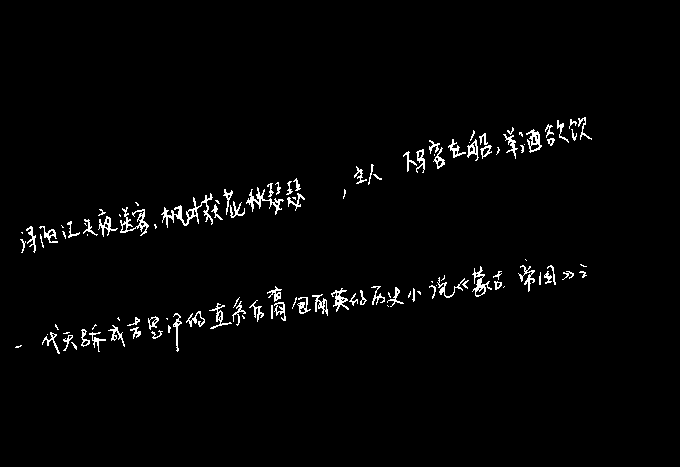 浔阳江头夜送客,枫叶荻花秋瑟瑟,主人下马客在船,举酒欲饮
一代天骄成吉思汗的直系后裔包丽英的历史小说《蒙古帝国》之